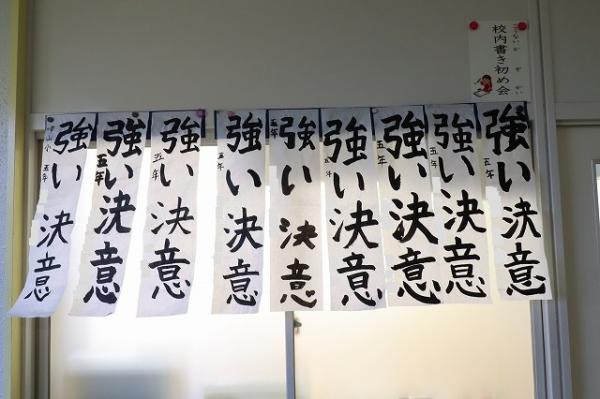 校内書き初め会
強い決意
五年
強い決意
五年
強い決意
五年
強い決意
五年
強い決意
五年
強い決意
五年
強い決意
五年
強い決意
五年
強い決意
五年